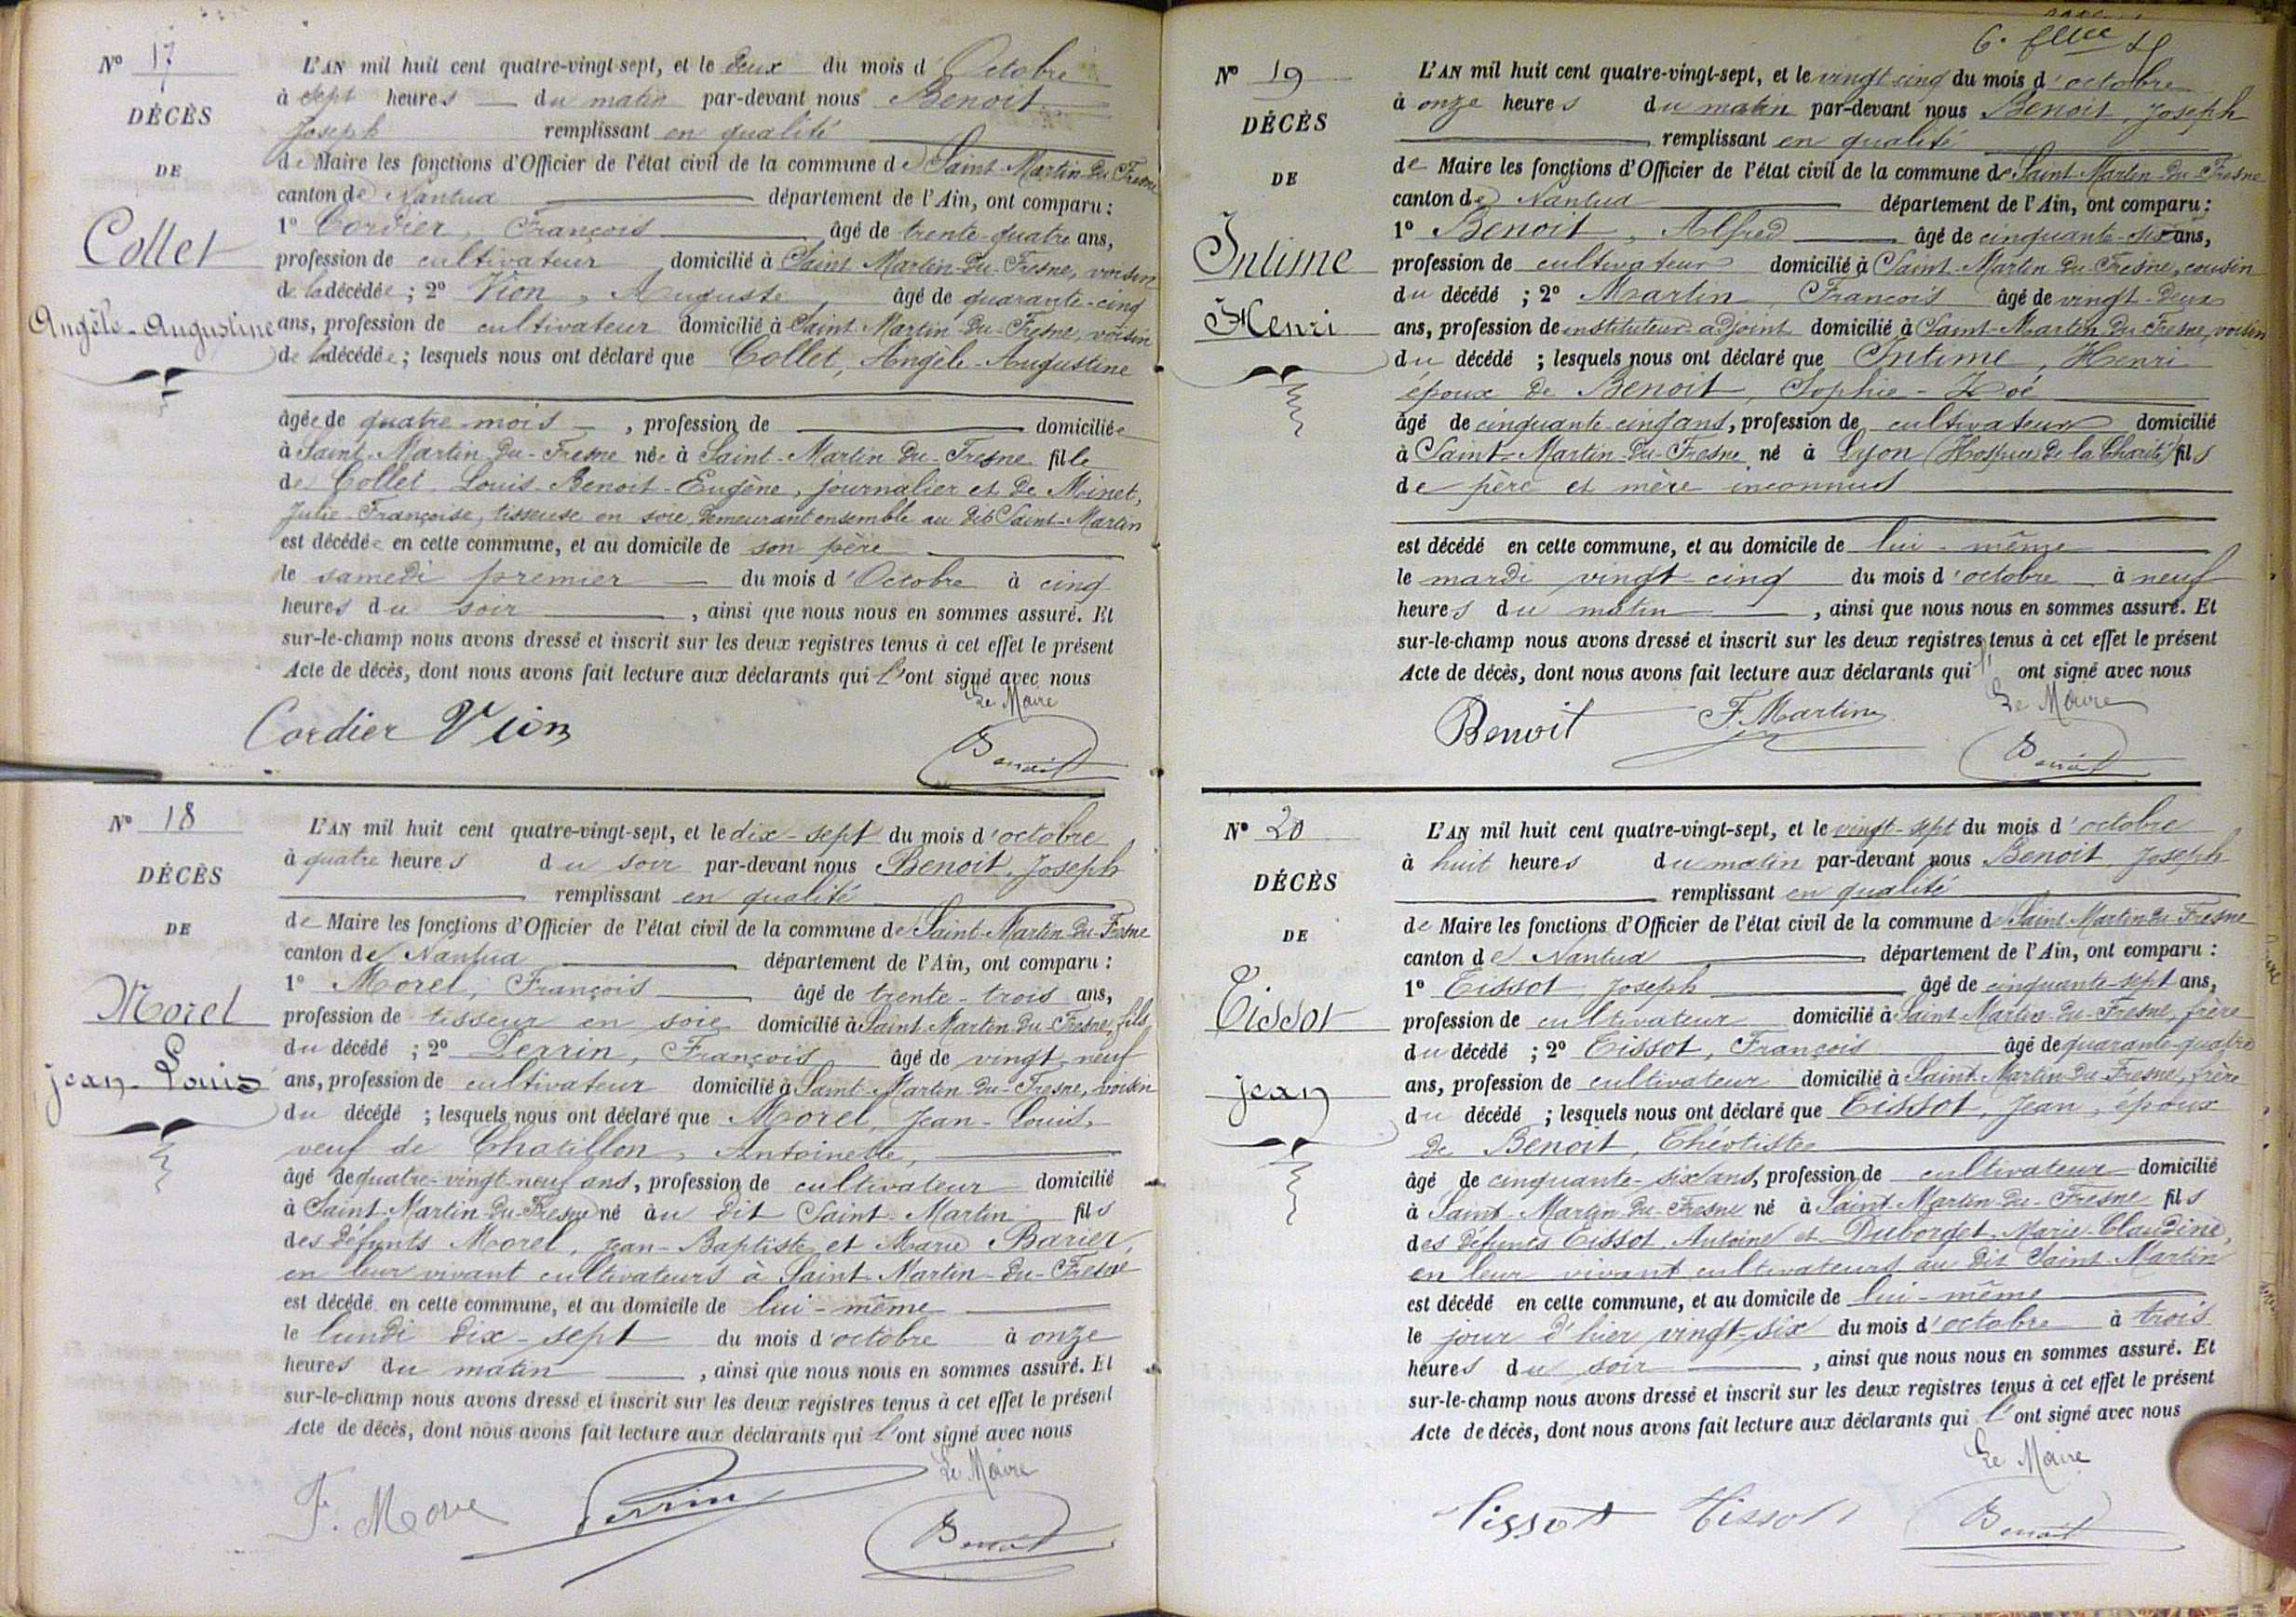 Nº 17
DÉCÈS
DE
Collet
Angèle-Augustine
L'AN mil huit cent quatre-vingt-sept, et le deux du mois d'Octobre
à sept heures du matin par-devant nous Benoit
Joseph remplissant en qualité
de Maire les fonctions d'Officier de l'état civil de la commune de Saint-Martin-du-Fresne
canton de Nantua département de l'Ain, ont comparu :
1º Cordier, François âgé de trente-quatre ans,
profession de cultivateur domicilié à Saint-Martin-du-Fresne, voisin
de la décédée ; 2º Vion, Auguste, âgé de quarante-cinq
ans, profession de cultivateur domicilié à Saint-Martin-du-Fresne, voisin
de la décédée ; lesquels nous ont déclaré que Collet, Angèle-Augustine
âgée de quatre mois, profession de domiciliée
à Saint-Martin-du-Fresne née à Saint-Martin-du-Fresne fille
de Collet Louis-Benoit-Eugène, journalier et de Moinet,
Julie-Françoise, tisseuse en soie, demeurant ensemble au dit Saint-Martin
est décédée en cette commune, et au domicile de son père
le samedi premier du mois d'Octobre à cinq
heures du soir, ainsi que nous nous en sommes assuré. Et
sur-le-champ nous avons dressé et inscrit sur les deux registres tenus à cet effet le présent
Acte de décès, dont nous avons fait lecture aux déclarants qui l'ont signé avec nous
Le Maire
Cordier Vion
Benoit
Nº 18
DÉCÈS
DE
Morel
Jean-Louis
L'AN mil huit cent quatre-vingt-sept, et le dix-sept du mois d'octobre
à quatre heures du soir par-devant nous Benoit, Joseph
remplissant en qualité
de Maire les fonctions d'Officier de l'état civil de la commune de Saint-Martin-du-Fresne
canton de Nantua département de l'Ain, ont comparu :
1º Morel, François âgé de trente-trois ans,
profession de tisseur en soie domicilié à Saint-Martin-du-Fresne, fils
du décédé ; 2º Perrin, François âgé de vingt-neuf
ans, profession de cultivateur domicilié à Saint-Martin-du-Fresne, voisin
du décédé ; lesquels nous ont déclaré que Morel, Jean-Louis,
veuf de Chatillon, Antoinette,
âgé de quatre-vingt-neuf ans, profession de cultivateur domicilié
à Saint-Martin-du-Fresne né au dit Saint-Martin fils
des défunts Morel, Jean-Baptiste et Marie Barier,
en leur vivant cultivateurs à Saint-Martin-du-Fresne
est décédé en cette commune, et au domicile de lui-même
le lundi dix-sept du mois d'octobre à onze
heures du matin, ainsi que nous nous en sommes assuré. Et
sur-le-champ nous avons dressé et inscrit sur les deux registres tenus à cet effet le présent
Acte de décès, dont nous avons fait lecture aux déclarants qui l'ont signé avec nous
Le Maire
F. More Perrin
Benoit
Nº 19
DÉCÈS
DE
Intime
Henri
L'AN mil huit cent quatre-vingt-sept, et le vingt-cinq du mois d'octobre
à onze heures du matin par-devant nous Benoit, Joseph
remplissant en qualité
de Maire les fonctions d'Officier de l'état civil de la commune de Saint-Martin-du-Fresne
canton de Nantua département de l'Ain, ont comparu :
1º Benoit, Alfred âgé de cinquante-six ans,
profession de cultivateur domicilié à Saint-Martin-du-Fresne, cousin
du décédé ; 2º Martin François âgé de vingt-deux
ans, profession de instituteur-adjoint domicilié à Saint-Martin-du-Fresne, voisin
du décédé ; lesquels nous ont déclaré que Intime, Henri
époux de Benoit, Sophie-Zoé
âgé de cinquante-cinq ans, profession de cultivateur domicilié
à Saint-Martin-du-Fresne né à Lyon (Hospice de la Charité) fils
de père et mère inconnus
est décédé en cette commune, et au domicile de lui-même
le mardi vingt-cinq du mois d'octobre à neuf
heures du matin, ainsi que nous nous en sommes assuré. Et
sur-le-champ nous avons dressé et inscrit sur les deux registres tenus à cet effet le présent
Acte de décès, dont nous avons fait lecture aux déclarants qui l'ont signé avec nous
Le Maire
Benoit F. Martin
Benoit
Nº 20
DÉCÈS
DE
Tissot
Jean
L'AN mil huit cent quatre-vingt-sept, et le vingt-sept du mois d'octobre
à huit heures du matin par-devant nous Benoit Joseph
remplissant en qualité
de Maire les fonctions d'Officier de l'état civil de la commune de Saint-Martin-du-Fresne
canton de Nantua département de l'Ain, ont comparu :
1º Tissot Joseph âgé de cinquante-sept ans,
profession de cultivateur domicilié à Saint-Martin-du-Fresne, frère
du décédé ; 2º Tissot, François âgé de quarante-quatre
ans, profession de cultivateur domicilié à Saint-Martin-du-Fresne, frère
du décédé ; lesquels nous ont déclaré que Tissot, Jean, époux
de Benoit, Théotiste
âgé de cinquante-six ans, profession de cultivateur domicilié
à Saint-Martin-du-Fresne né à Saint-Martin-du-Fresne fils
des défunts Tissot, Antoine et Duborget Marie-Claudine,
en leur vivant cultivateurs au dit Saint-Martin
est décédé en cette commune, et au domicile de lui-même
le jour d'hier vingt-six du mois d'octobre à trois
heures du soir, ainsi que nous nous en sommes assuré. Et
sur-le-champ nous avons dressé et inscrit sur les deux registres tenus à cet effet le présent
Acte de décès, dont nous avons fait lecture aux déclarants qui l'ont signé avec nous
Le Maire
Tissot Tissot
Benoit